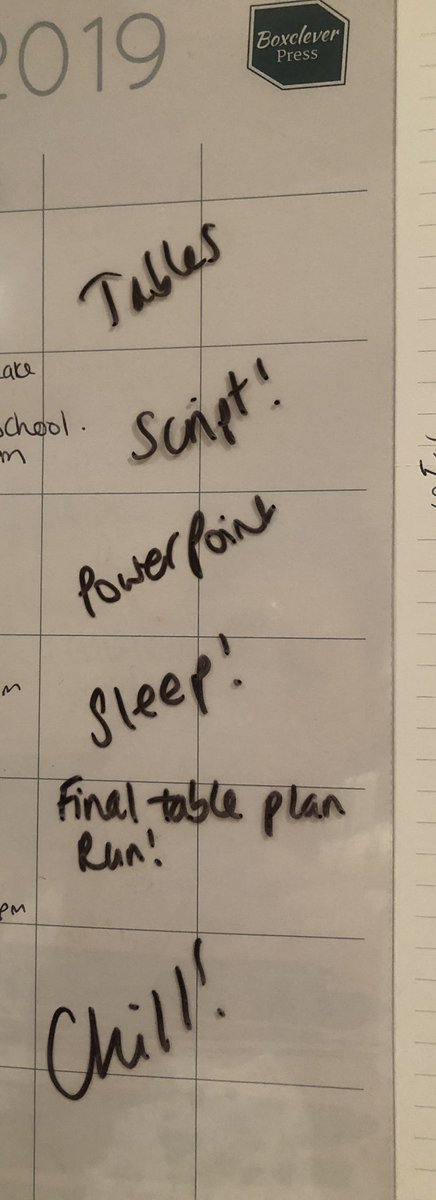 2019
Boxclever
Press
Tables
ake
school.
m
Script!
PowerPoint
m
Sleep!
Final table plan
Run!
pm
Chill!